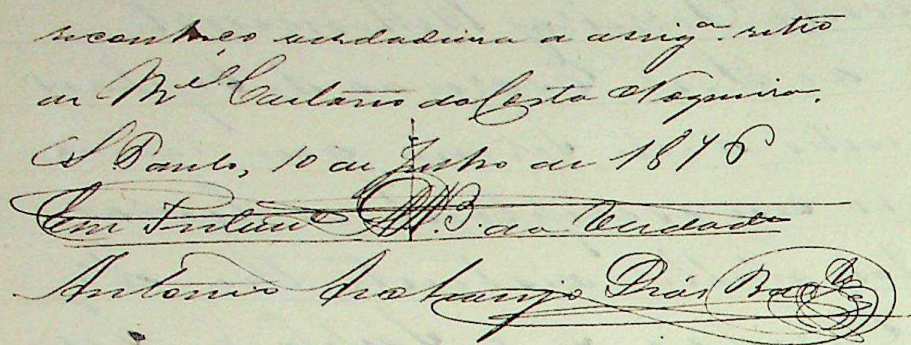 reconheço verdadeira a assigª retro
de Mel Caetano da Costa Nogueira.
S Paulo, 10 de Julho de 1876
Em Testº da Verdade
Antonio Araujo